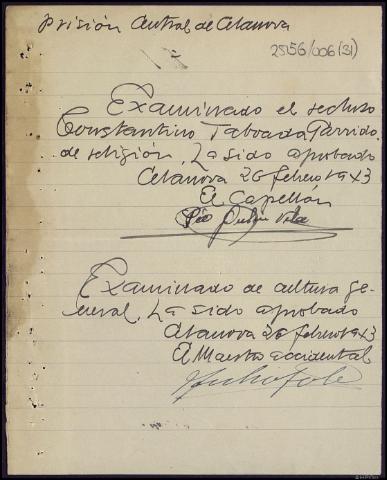 Prisión Central de Celanova
25156/006(31)
Examinado el recluso
Constantino Taboada Garrido
de religión, ha sido aprobado
Celanova 26 febrero 1943
El Capellán
Examinado de cultura ge-
neral, ha sido aprobado
Celanova 26 febrero 1943
El Maestro accidental